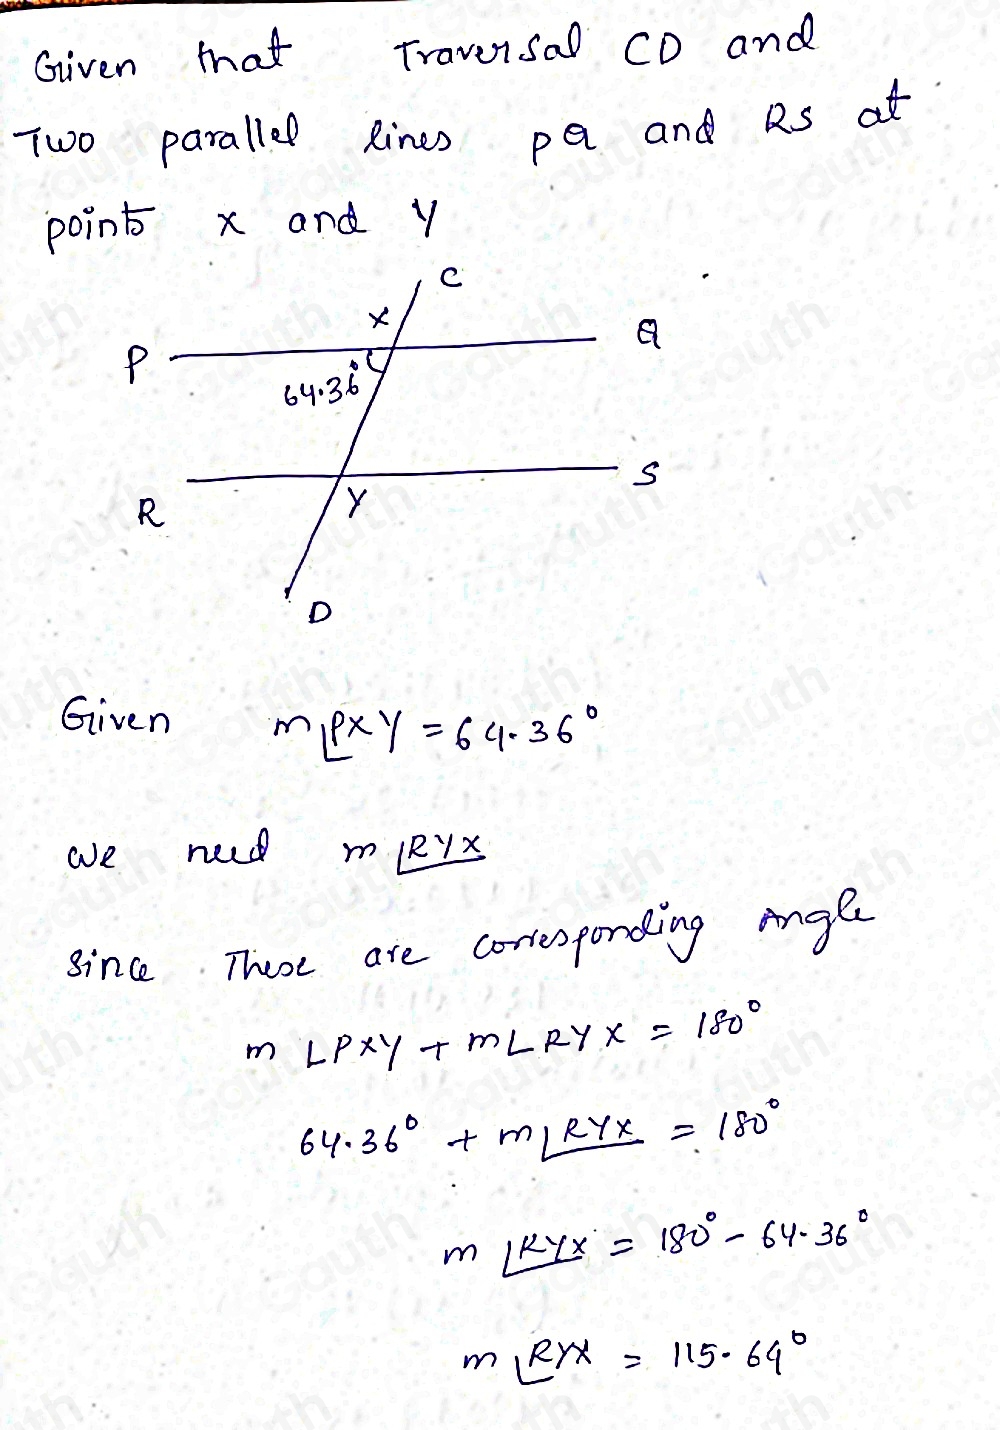 Given that Traversal CD and
Two parallel lines PQ and RS at
points x and y
C
x
P
Q
64.36°
R
S
y
D
Given m∠PXY = 64.36°
we need m∠RYX
since These are corresponding Angle
m∠PXY + m∠RYX = 180°
64.36° + m∠RYX = 180°
m∠RYX = 180° - 64.36°
m∠RYX = 115.64°